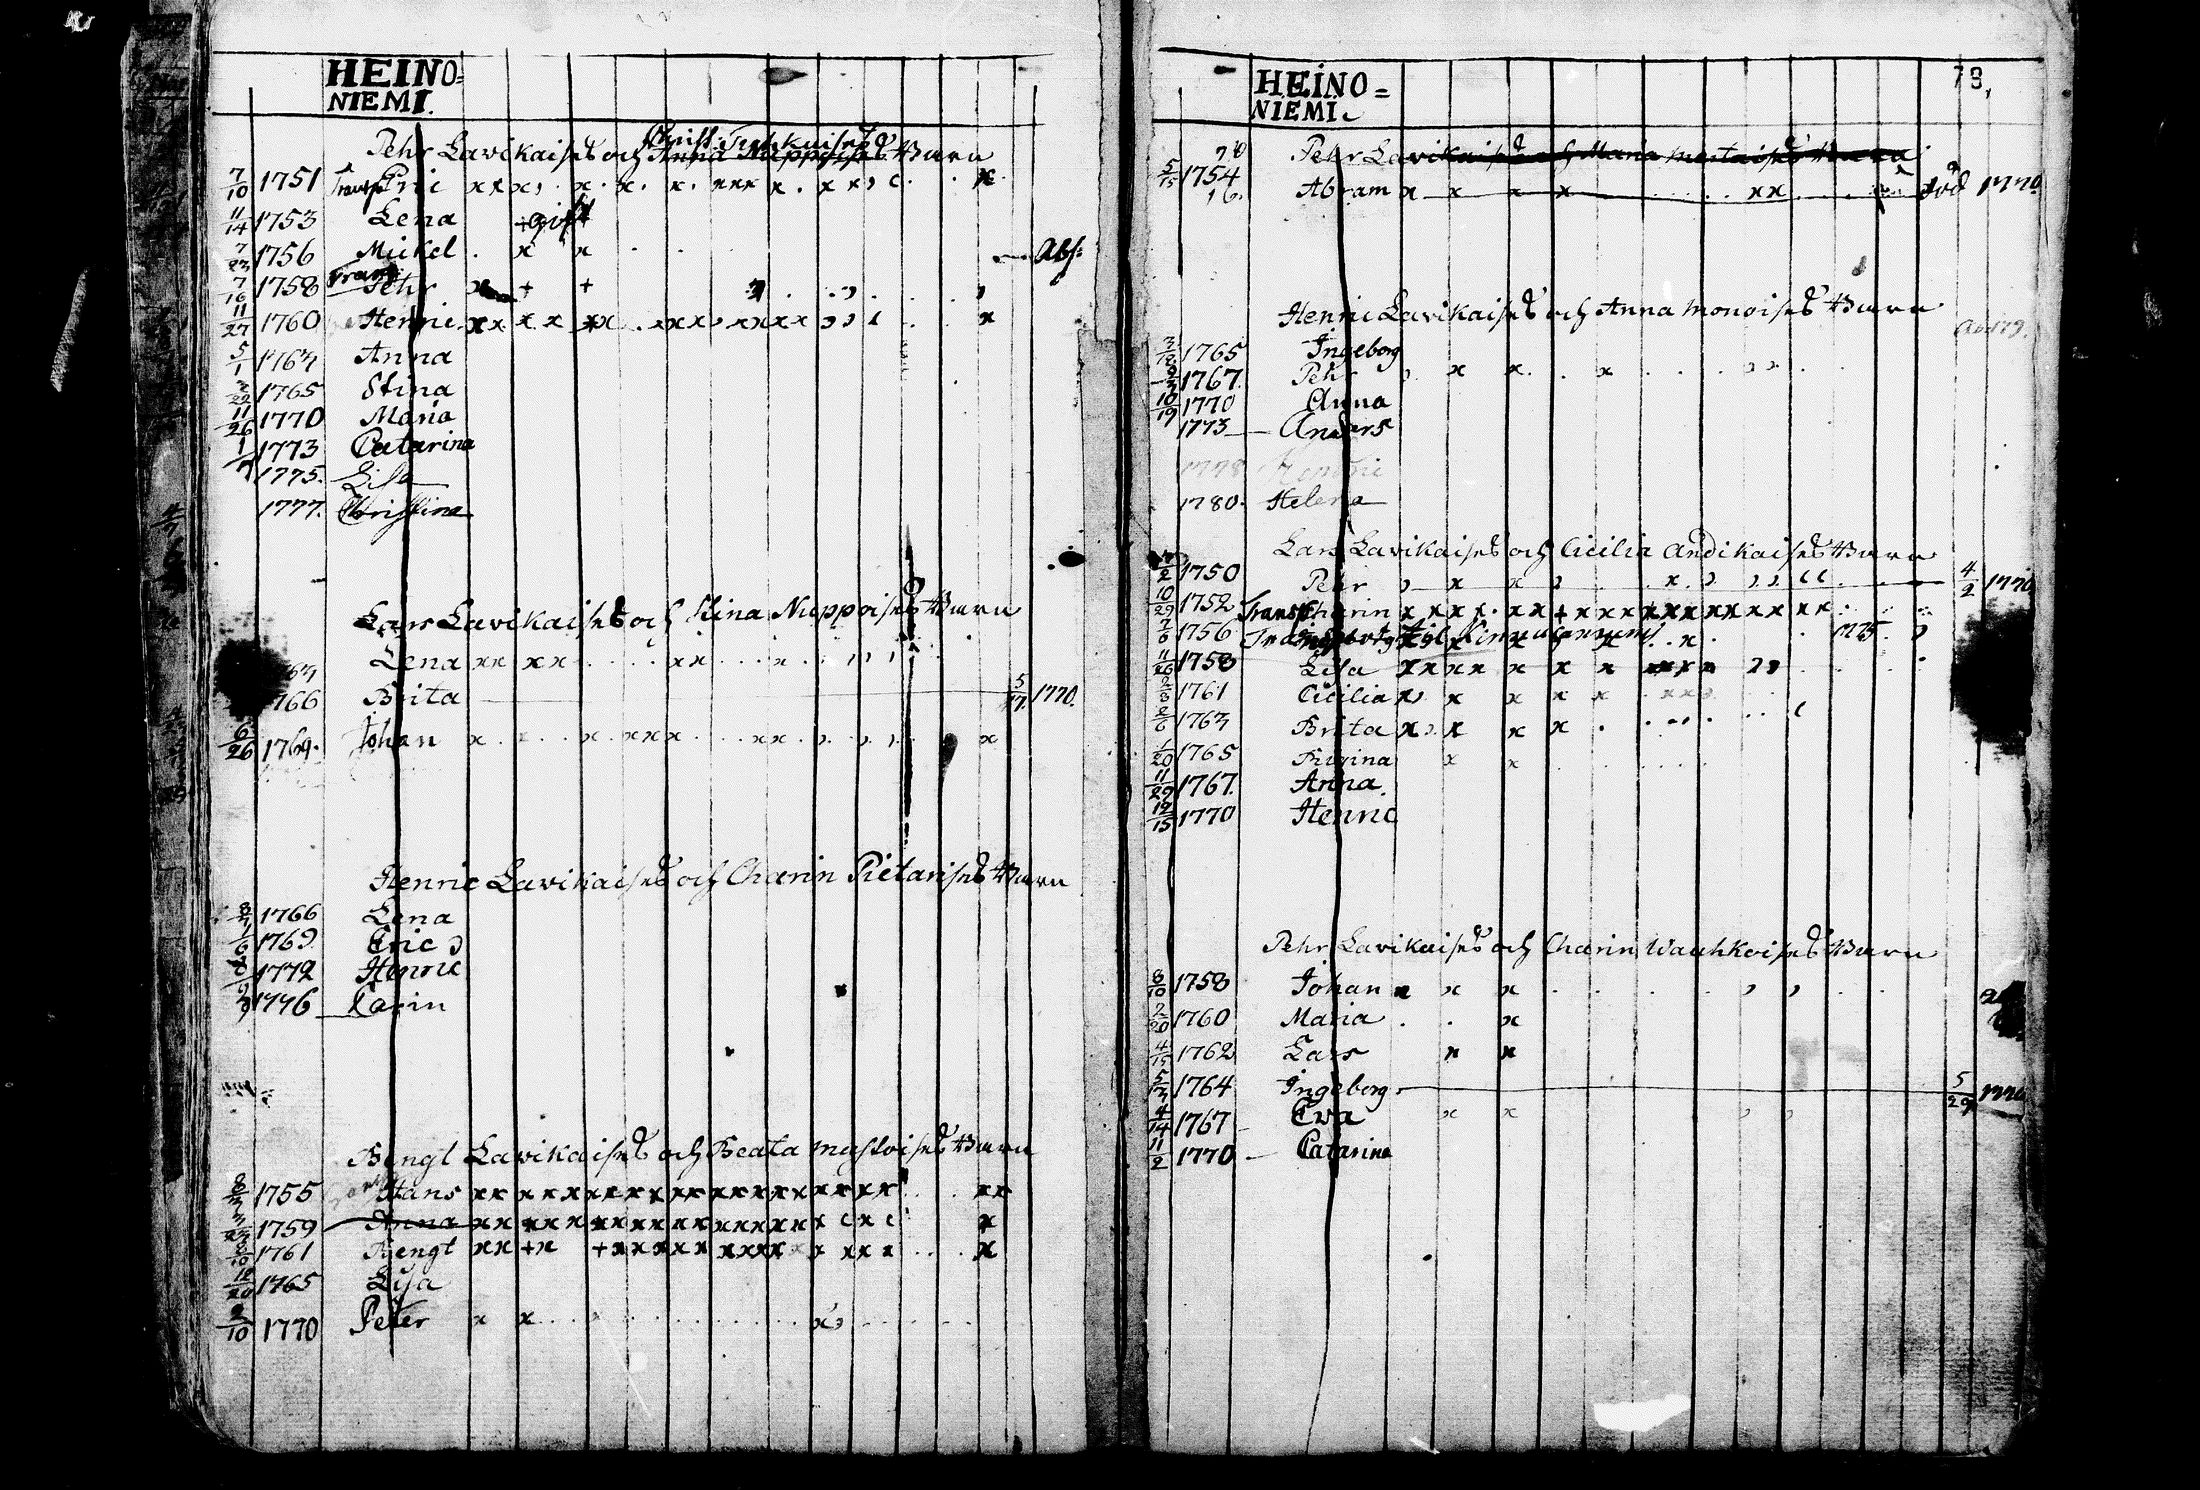 HEINO=
NIEMI.
Christ: Tiahkaised
Pehr Lavikaised och Anna Nuppoised Barn
7/10 1751 Transp Eric
11/14 1753 Lena gift
7/23 1756 Mickel Abs:
7/16 1758 Transp Pehr
11/27 1760 Henric
5/1 1763 Anna
2/22 1765 Stina
11/26 1770 Maria
1/7 1773 Catarina
1775. Lisa
1777. Christina
Lars Lavikaised och Stina Nuppoised Barn
Lena
1766 Brita 5/17. 1770.
6/26 1769. Johan
Henric Lavikaised och Charin Pietarised Barn
1766 Lena
1/6 1769. Eric
1772 Henric
1776 Carin
Bengt Lavikaised och Beata Mustoised Barn
1755 Hans
1759 Anna
1761 Bengt
12/20 1765 Lisa
2/10 1770 Peter
HEINO=
NIEMI.
78,
Pehr Lavikaised och Maria Martaised Barn
5/15 1754 Abram död 1770
16.
Henric Lavikaised och Anna Monoised Barn
1765 Ingeborg
1767. Pehr
10/19 1770 Anna
1773 Anders
1778 Henric
1780. Helena
Lars Lavikaised och Cicilia Andikaised Barn
1750 Pehr 4/2 1770
10/29 1752 Transp Charin
7/6 1756 1775.
11/26 1758 Lisa
1761 Cicilia
1763 Brita
1765 Regina
11/29 1767. Anna.
12/15 1770 Henric
Pehr Lavikaised och Charin Wauhkoised Barn
8/10 1758 Johan
2/20 1760 Maria
4/15 1762 Lars
5/3 1764 Ingeborg 5/29 1770
4/14 1767 Eva
11/2 1770 Catarina